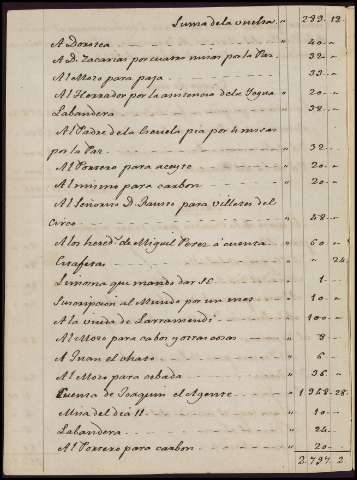 Suma de la vuelta " 233-12.
A Dorotea " 40-"
A D. Zacarias por cuatro misas por la Paz " 32-
Al Mozo para paja " 33-
Al Herrador por la asistencia de la Yegua " 20-
Labandera " 38-
Al Padre de la Escuela pia por 4 misas
por la Paz " 32-
Al Portero para aceyte " 20-
Al mismo para carbon " 20-
Al Señorito D. Fausto para villetes del
Circo " 48-
A los hered.s de Miguel Perez á cuenta " 60-
Estafetas " " 24.
Limosna que mando dar SE " 1-
Suscripcion al Mundo por un mes " 10-
A la viuda de Larramendi " 100-
Al Mozo para cabos y otras cosas " 8
A Juan el chato " 6-
Al Mozo para cebada " 36-
Cuenta de Joaquin el Agente 1968-28-
Misa del dia 11 " 10-
Labandera " 24-
Al Portero para carbon " 20-
2.797.2